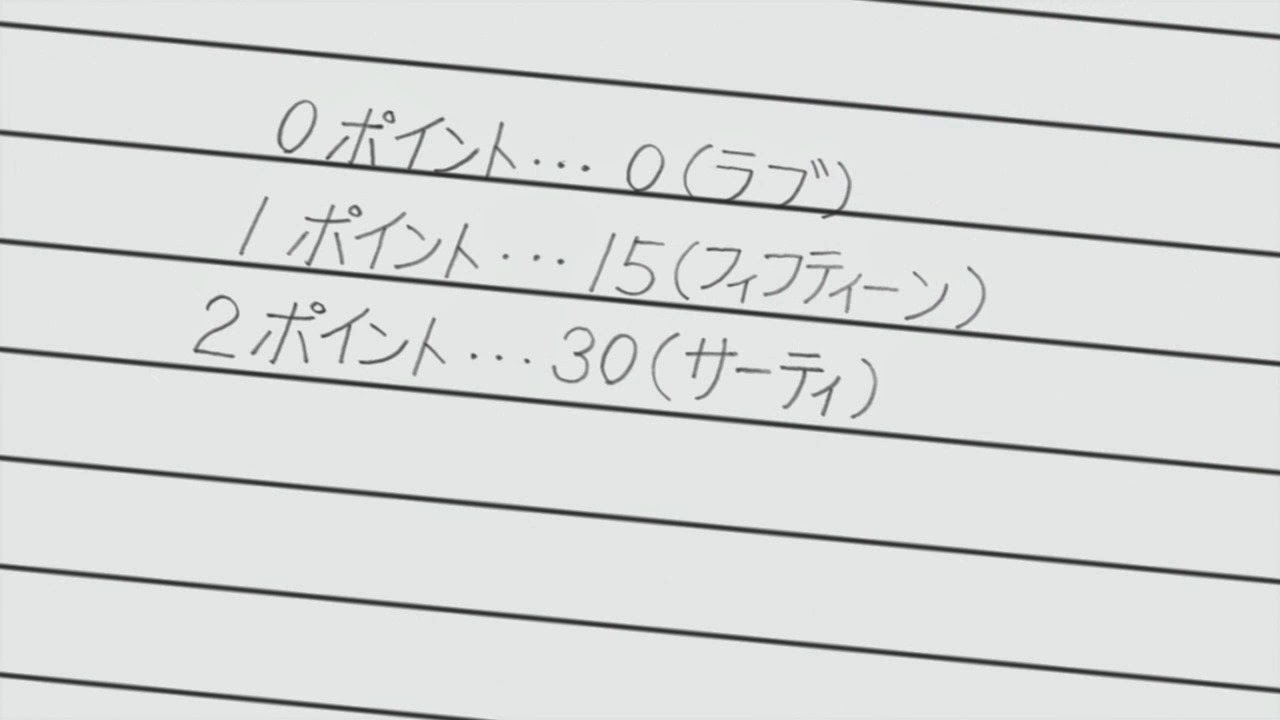 0ポイント…0(ラブ)
1ポイント…15(フィフティーン)
2ポイント…30(サーティ)